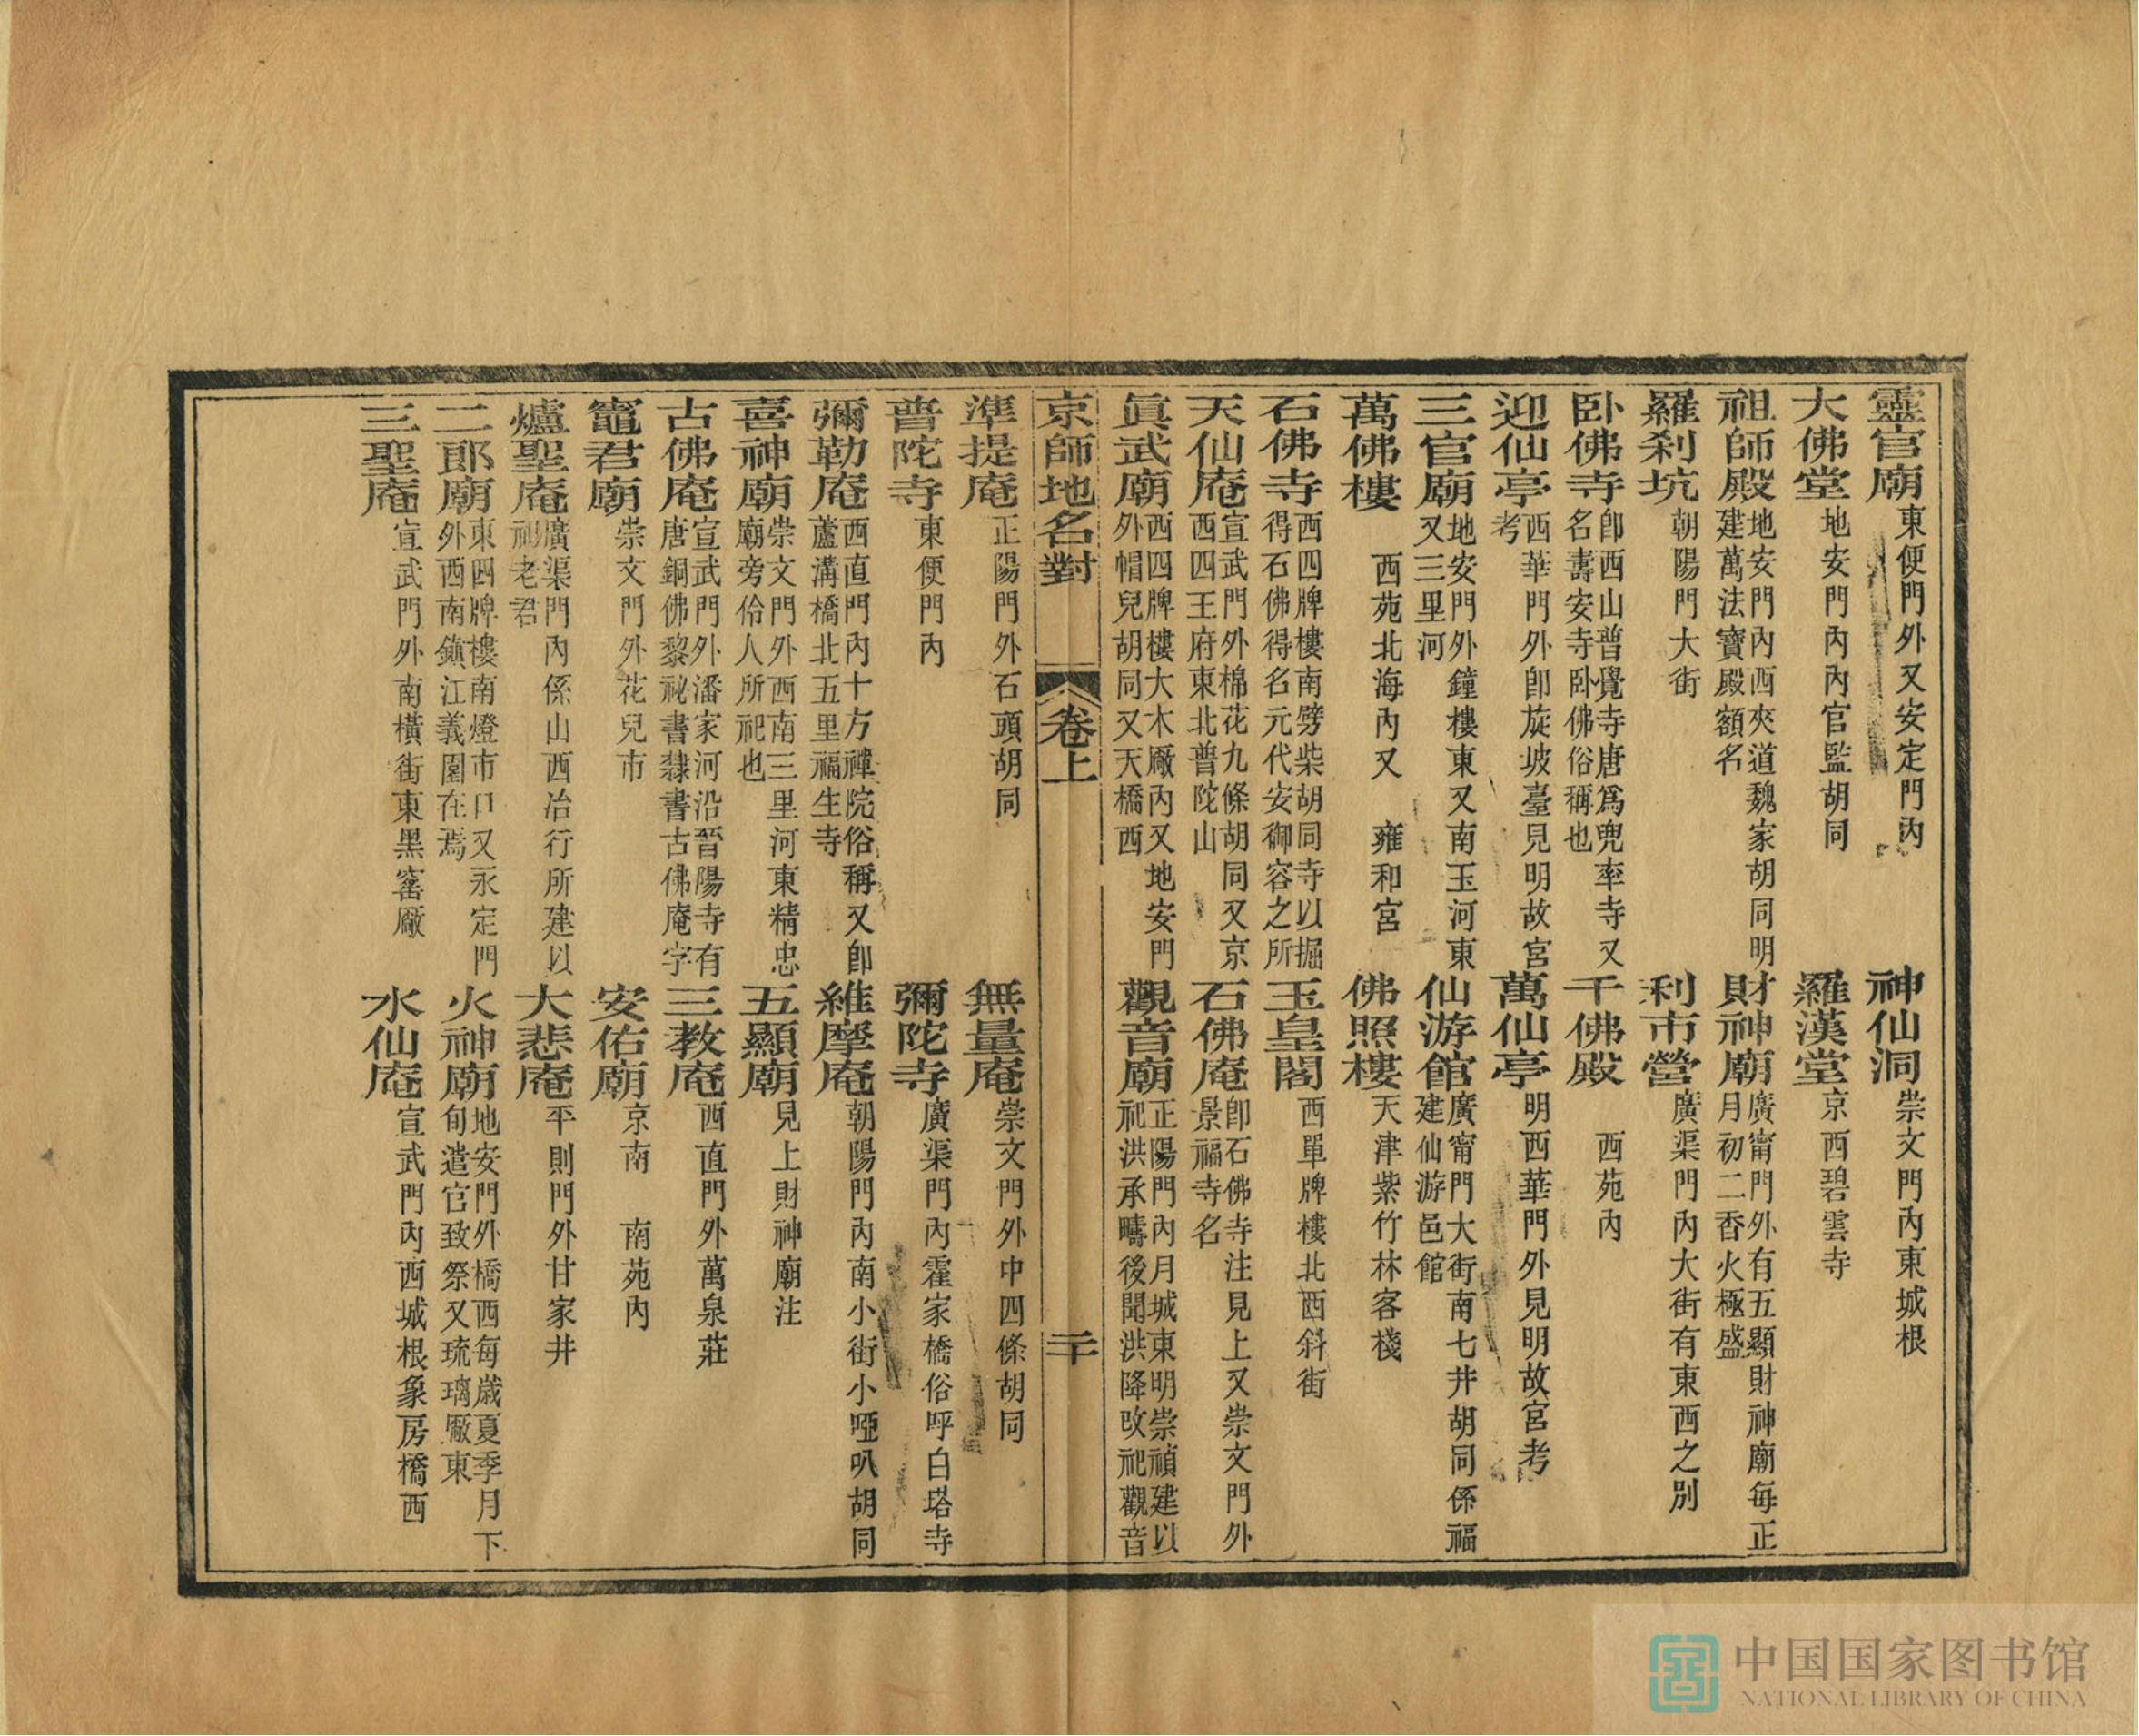 靈官廟東便門外又安定門內　神仙洞崇文門內東城根
大佛堂地安門內內官監胡同　羅漢堂京西碧雲寺
祖師殿地安門內西夾道魏家胡同明建萬法寶殿額名　財神廟廣甯門外有五顯財神廟每正月初二香火極盛
羅剎坑朝陽門大街　利市營廣渠門內大街有東西之別
卧佛寺卽西山普覺寺唐爲兜率寺又名壽安寺卧佛俗稱也　千佛殿西苑內
迎仙亭西華門外卽旋坡臺見明故宮考　萬仙亭明西華門外見明故宮考
三官廟地安門外鐘樓東又南玉河東又三里河　仙游館廣甯門大街南七井胡同係福建仙游邑館
萬佛樓西苑北海內又　雍和宮　佛照樓天津紫竹林客棧
石佛寺西四牌樓南劈柴胡同寺以掘得石佛得名元代安御容之所　玉皇閣西單牌樓北西斜街
天仙庵宣武門外棉花九條胡同又京西四王府東北普陀山　石佛庵卽石佛寺注見上又崇文門外景福寺名
眞武廟西四牌樓大木廠內又地安門外帽兒胡同又天橋西　觀音廟正陽門內月城東明崇禎建以祀洪承疇後聞洪降改祀觀音
京師地名對　卷上　二十
準提庵正陽門外石頭胡同　無量庵崇文門外中四條胡同
普陀寺東便門內　彌陀寺廣渠門內霍家橋俗呼白塔寺
彌勒庵西直門內十方禪院俗稱又卽蘆溝橋北五里福生寺　維摩庵朝陽門內南小街小啞叭胡同
喜神廟崇文門外西南三里河東精忠廟旁伶人所祀也　五顯廟見上財神廟注
古佛庵宣武門外潘家河沿晉陽寺有唐銅佛黎祕書隸書古佛庵字　三教庵西直門外萬泉莊
竈君廟崇文門外花兒市　安佑廟京南　南苑內
爐聖庵廣渠門內係山西冶行所建以祀老君　大悲庵平則門外甘家井
二郎廟東四牌樓南燈市口又永定門外西南鎮江義園在焉　火神廟地安門外橋西每歲夏季月下旬遣官致祭又琉璃廠東
三聖庵宣武門外南橫街東黑窰廠　水仙庵宣武門內西城根象房橋西
中国国家图书馆
NATIONAL LIBRARY OF CHINA